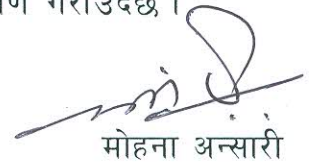 गराउँदछ ।
मोहना अन्सारी